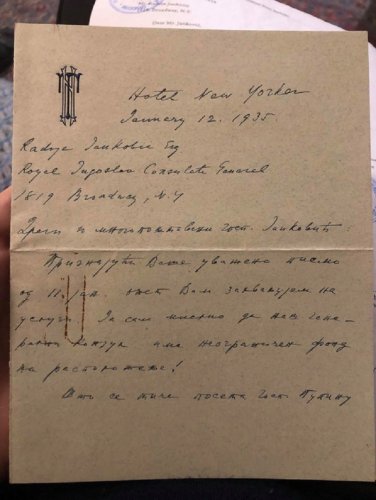 Dear Mr. Jankovic,
Hotel New Yorker
January 12. 1935.
Radoje Jankovic Esq
Royal Jugoslav Consulate General
1819 Broadway, N.Y
Драги и многопоштовани госп. Јанковић:
Признајући Ваше уважено писмо
од 11. јан. Вам захваљујем на
услуги. Ја сам мислио да наш гене-
рални конзул има неограничен фонд
на расположењу!
Што се тиче посета госп. Пупину